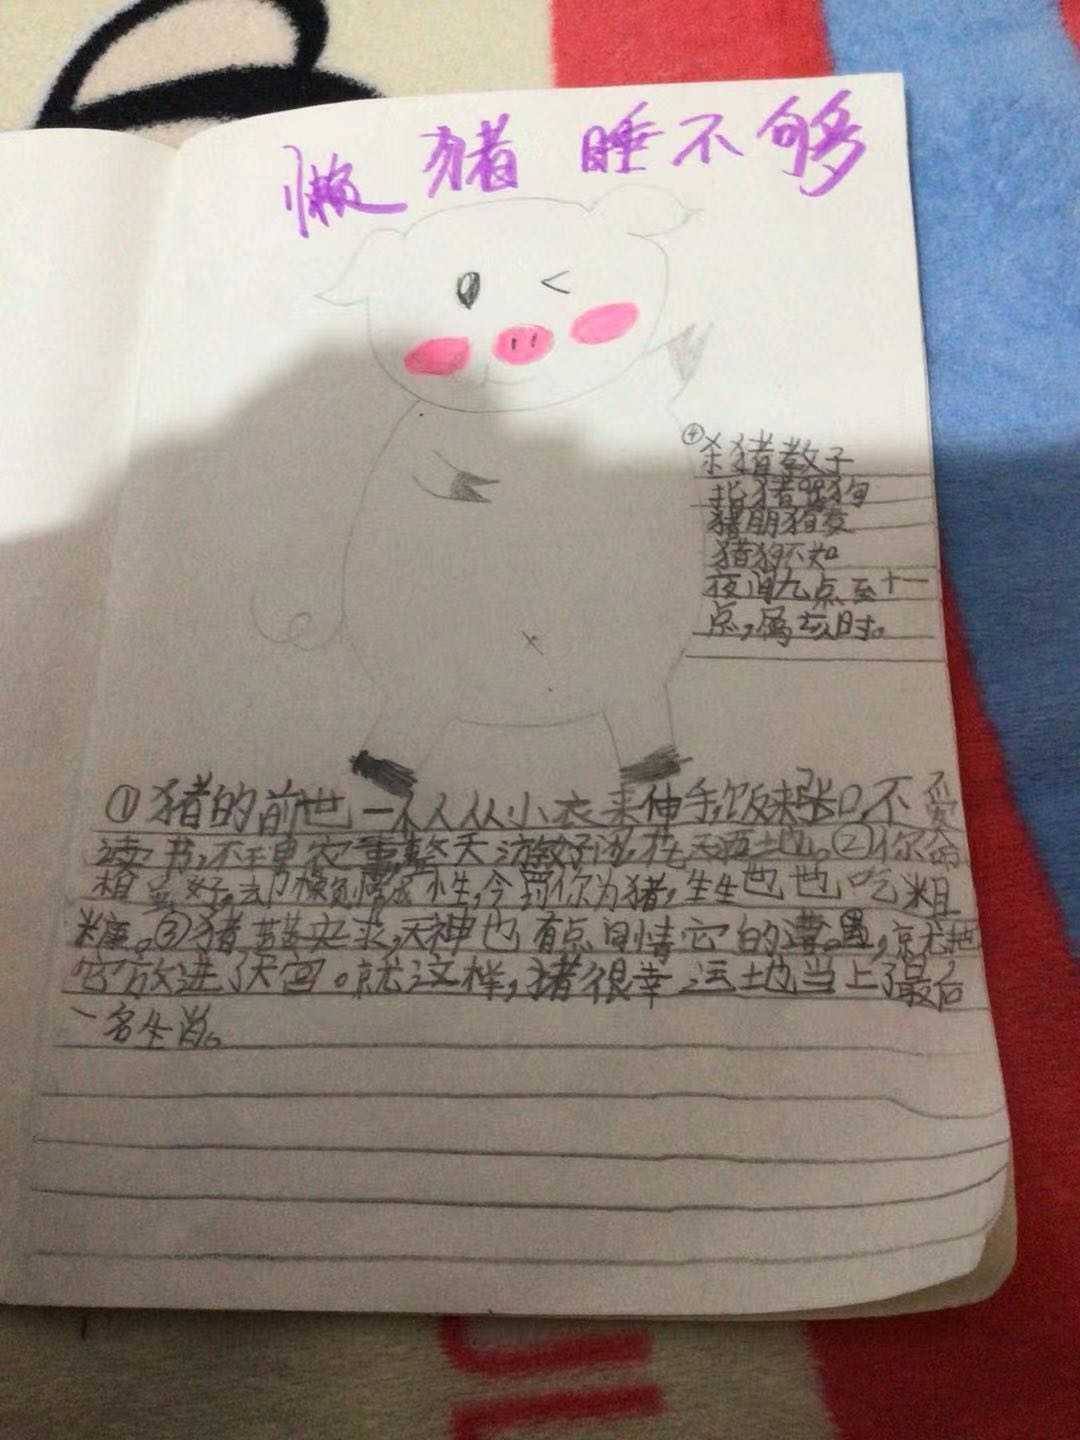 懒猪睡不够
④杀猪教子
指猪骂狗
猪朋狗友
猪狗不如
夜间九点至十一
点,属亥时。
①猪的前世一个人从小衣来伸手,饭来张口,不爱
读书,不干农事,整天游好闲,花天酒地。②你命
相虽好,却懒惰成性,今罚你为猪,生生世世吃粗
糠。③猪苦苦央求,天神也有点同情它的遭遇,就把
它放进了天宫。就这样,猪很幸运地当上了最后
一名生肖。